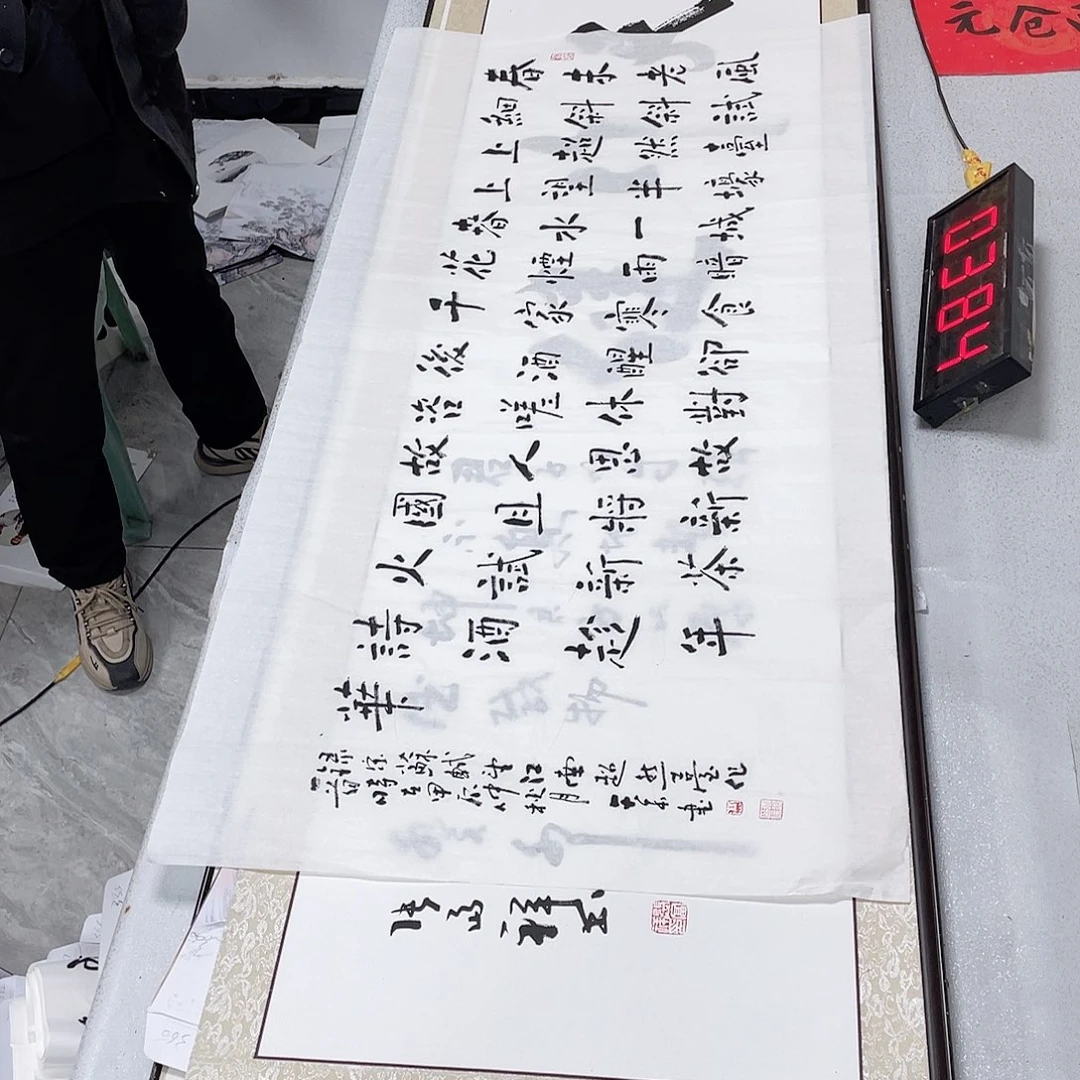 春未老風
細斜斜試
上超然臺
上半壕
春水一城
花煙雨暗
千家寒食
後酒醒卻
咨嗟休對
故人思故
國且將新
火試新茶
詩酒趁年
華
錄宋蘇軾望江南超然臺作
時在甲辰仲秋月
元仓
0384